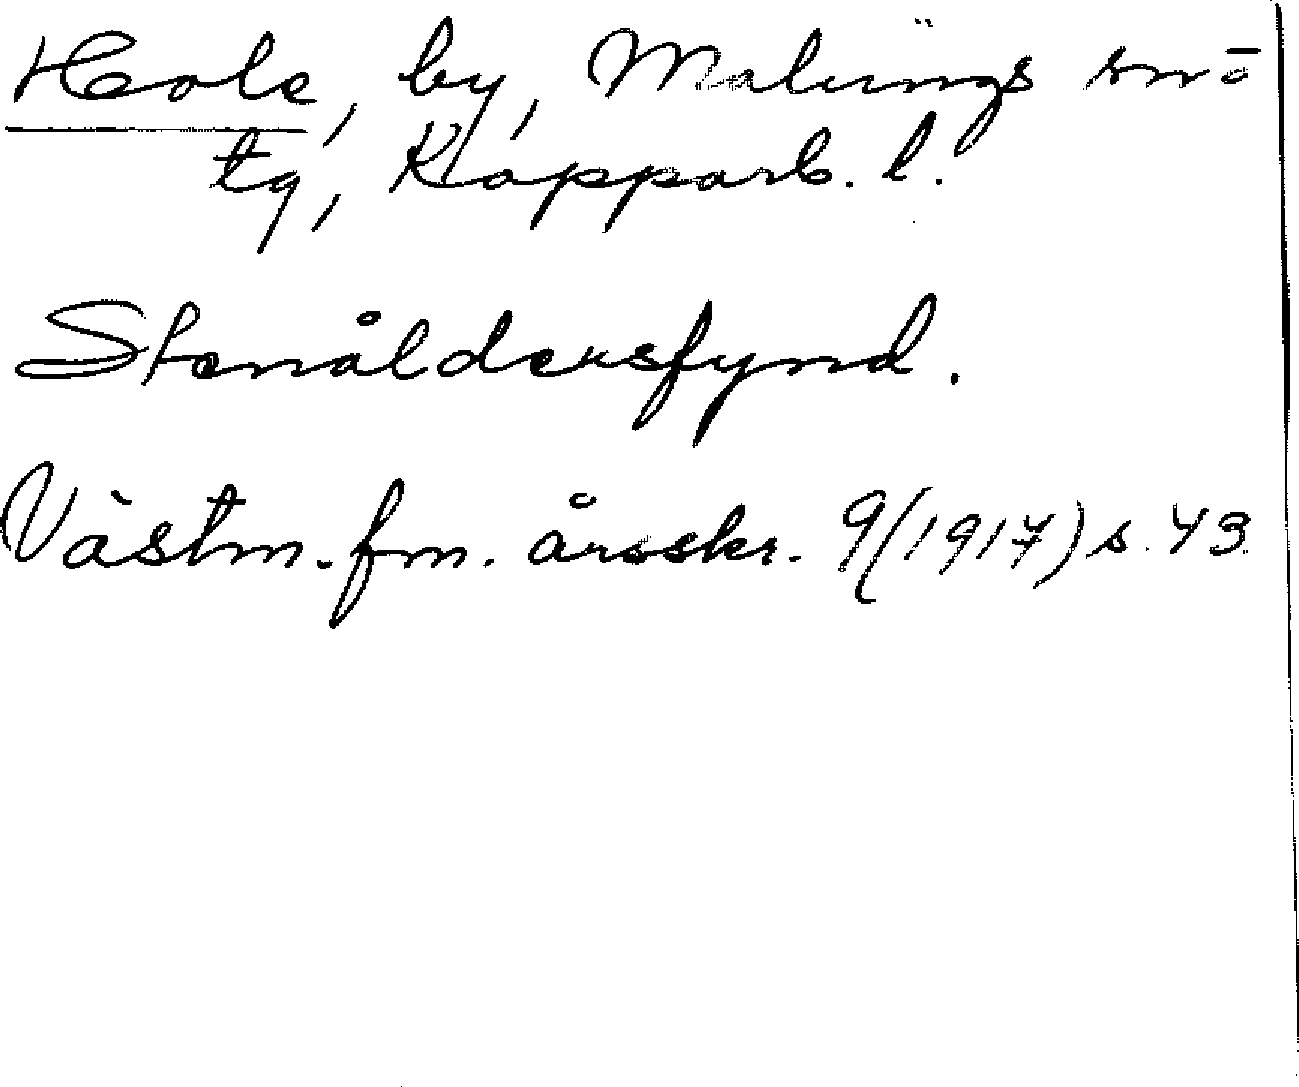 Hole, by, Malungs sn o
tg, Kopparb. l.
Stenåldersfynd.
Västm. fm. årsskr. 9(1917) s. 43